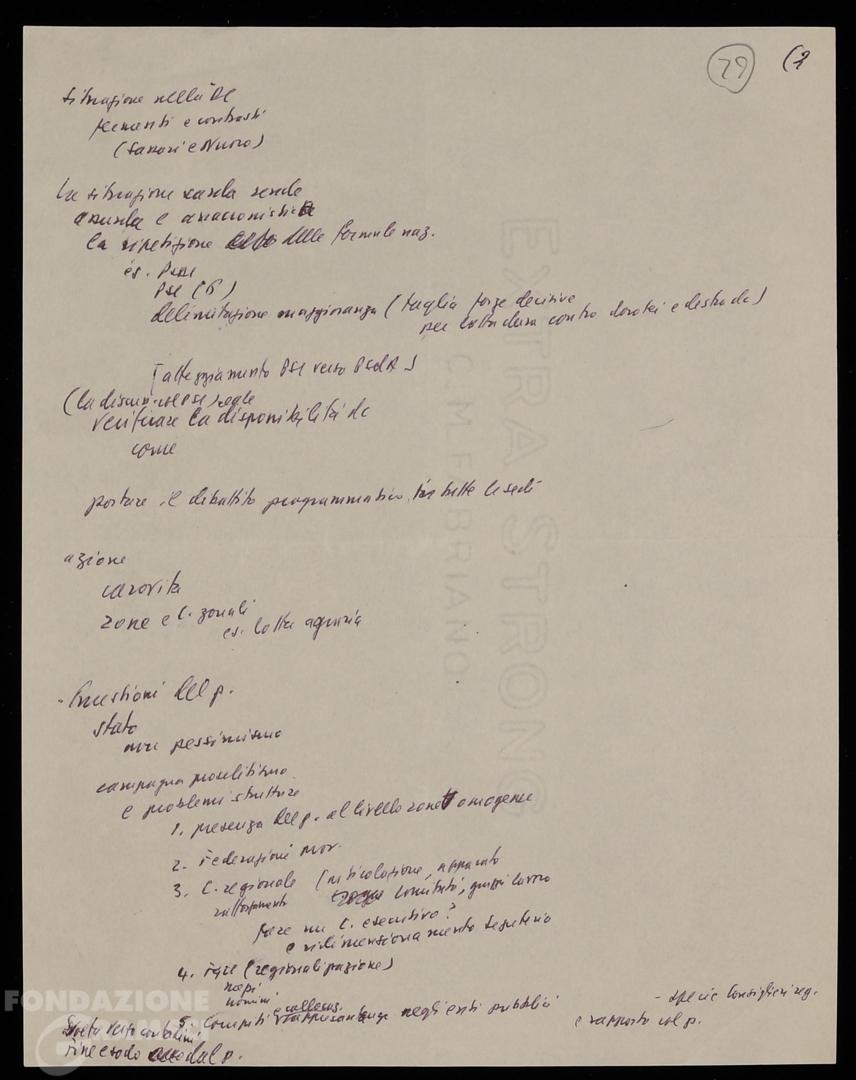 29 (2
situazione nella DC
fermenti e contrasti
(Sassari e Nuoro)
La situazione sarda rende
assurda e anacronistica
la ripetizione delle formule naz.
es. PSDI
PSI (6)
delimitazione maggioranza (taglia forze decisive
per lotta dura contro dorotei e destra dc)
[atteggiamento PSI verso PSdA]
verificare la disponibilità dc
come
portare il dibattito programmatico in tutte le sedi
azione
carovita
zone e C. zonali
es. lotta agraria
- Questioni del p.
stato
non pessimismo
campagna proselitismo
e problemi strutture
1. presenza del p. al livello zone omogenee
2. Federazioni prov.
3. C. regionale (articolazione, apparato
rafforzamento comitato, gruppi lavoro
fare un C. esecutivo?
e ridimensionamento segreteria
4. (regionalizzazione)
5. Compiti negli enti pubblici
- specie Consiglieri reg.
e rapporto col p.
dal p.
EXTRA STRONG
C.M. FABRIANO
FONDAZIONE